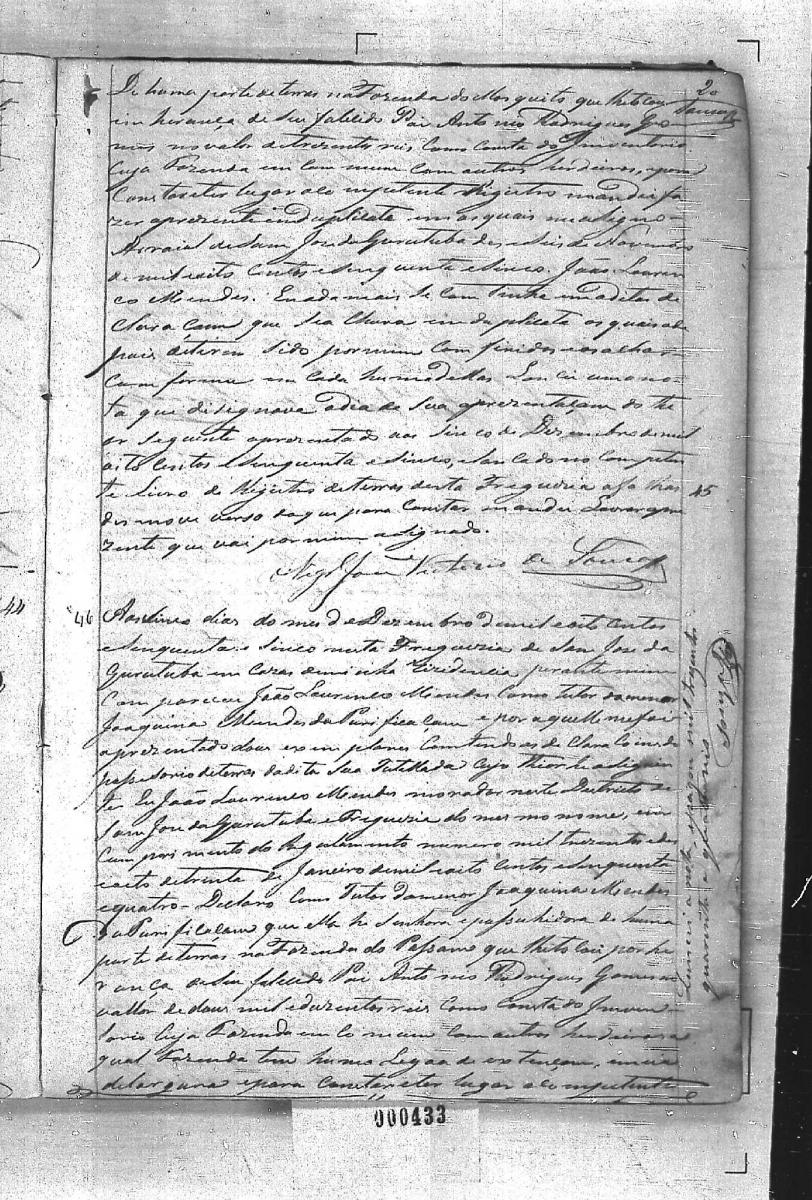 20
Sousa
De huma parte de terras na Fazenda do Mosquito que lhe tocou
em herança de seu falecido Pai Antonio Rodrigues Go
mes no valor de trezentos reis como consta do Inventario
Cuja Fazenda em commum com outros herdeiros, e para
Constar e ter lugar a competente Registro mandei fa
zer a prezente em duplicata em as quais me asigno
Arraial de Sam Joze da Gurutuba des e seis de Novembro
de mil oito Centos e sinquenta e sinco. João Louren
co Mendes. E nada mais se continha em a dita de
Clara çam que se a Chava em duplicata as quais de
pois de terem sido por mim conferidas e as achar
Comforme em cada huma dellas Lancei uma no
ta que designava o dia de sua aprezentaçam do the
or seguinte aprezentado aos sinco de Dezembro de mil
oito Centos e sinquenta e sinco, e Lancado no competen
te Livro de Registro de terras desta Freguezia a folhas
des nove verso do que para Constar mandei Lavrar a pre
zente que vai por mim asignado.
45
Joze Victorio de Sousa
44
46 Aos sinco dias do mes de Dezembro de mil oito Centos
e sinquenta e sinco nesta Freguezia de San Joze da
Gurutuba em cazas de minha Rezidencia perante mim
Compareceu João Lourenco Mendes como tutor da menor
Joaquina Mendes da Purificaçam e por aquelle me foi
aprezentado dous exemplares Contendo as de Claracoins de
possesorio de terras da dita sua Tutellada Cujo thior he o seguin
te: Eu João Lourenco Mendes morador neste Destricto de
Sam Joze da Gurutuba e Freguezia do mesmo nome, em
Comprimento do Regulamento numero mil trezentos e de
zoito de trinta de Janeiro de mil oito Centos e sinquenta
e quatro - Declaro Como Tutor da menor Joaquina Mendes
da Purificacam que ella he Senhora e possuhidora de huma
parte de terras na Fazenda do que lhe tocou por he
rança de seu falecido Pai Antonio Rodrigues Gomes no
vallor de dous mil e duzentos reis como consta do Inven
tario Cuja Fazenda em Commum com outros herdeiros a
qual Fazenda tem huma Legoa de extençam, e meia
de largura e para Constar e ter lugar a competente
Lancei a parte, e pagou mil trezentos
quarenta e quatro reis
Sousa
000433